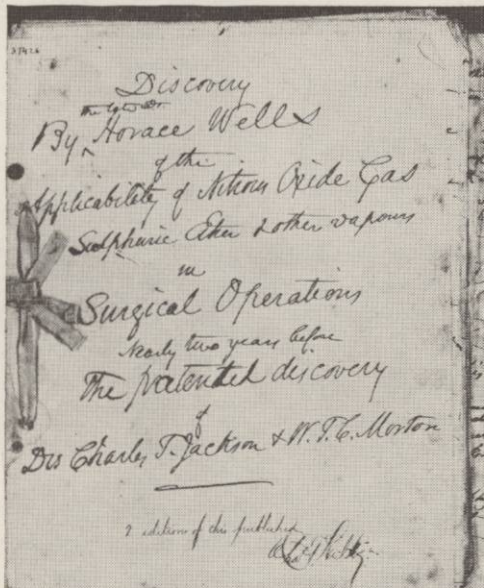 Discovery
the late Dr
By ^ Horace Wells
of the
Applicability of Nitrous Oxide Gas
Sulphuric Ether & other vapours
in
Surgical Operations
Nearly two years before
The patented discovery
of
Drs Charles T. Jackson & W. T. G. Morton
2 editions of this published